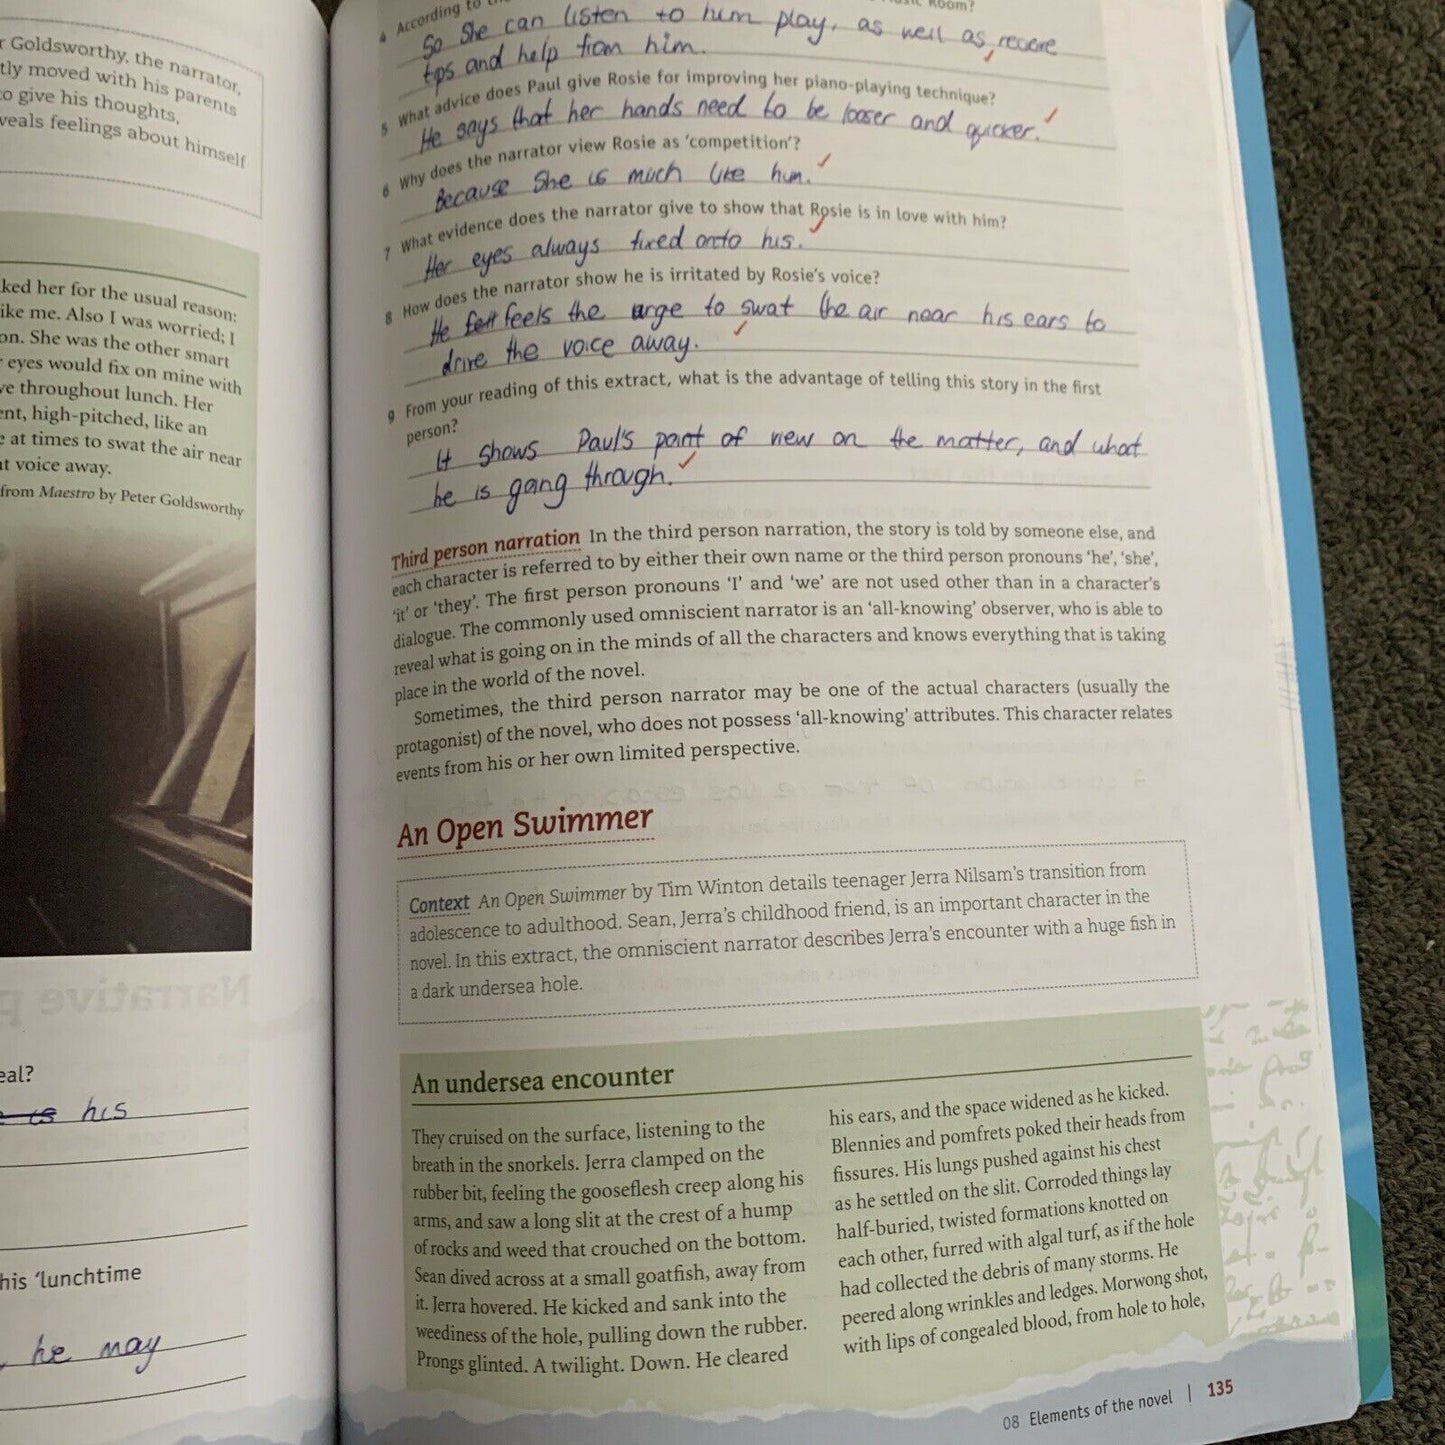 r Goldsworthy, the narrator,
tly moved with his parents
to give his thoughts,
veals feelings about himself
ked her for the usual reason:
ike me. Also I was worried; I
on. She was the other smart
r eyes would fix on mine with
ve throughout lunch. Her
ent, high-pitched, like an
e at times to swat the air near
at voice away.
from Maestro by Peter Goldsworthy
Narrative p
eal?
is his
his ‘lunchtime
, he may
4 According to
Room?
So She can listen to him play, as well as recieve
tips and help from him.
5 What advice does Paul give Rosie for improving her piano-playing technique?
He says that her hands need to be looser and quicker.
6 Why does the narrator view Rosie as ‘competition’?
Because She is much like him.
7 What evidence does the narrator give to show that Rosie is in love with him?
Her eyes always fixed onto his.
8 How does the narrator show he is irritated by Rosie's voice?
He felt feels the urge to swat the air near his ears to
drive the voice away.
9 From your reading of this extract, what is the advantage of telling this story in the first
person?
It shows Paul's point of view on the matter, and what
he is going through.
Third person narration In the third person narration, the story is told by someone else, and
each character is referred to by either their own name or the third person pronouns ‘he’, ‘she’,
‘it’ or ‘they’. The first person pronouns ‘I’ and ‘we’ are not used other than in a character's
dialogue. The commonly used omniscient narrator is an ‘all-knowing’ observer, who is able to
reveal what is going on in the minds of all the characters and knows everything that is taking
place in the world of the novel.
Sometimes, the third person narrator may be one of the actual characters (usually the
protagonist) of the novel, who does not possess ‘all-knowing’ attributes. This character relates
events from his or her own limited perspective.
An Open Swimmer
Context An Open Swimmer by Tim Winton details teenager Jerra Nilsam's transition from
adolescence to adulthood. Sean, Jerra's childhood friend, is an important character in the
novel. In this extract, the omniscient narrator describes Jerra's encounter with a huge fish in
a dark undersea hole.
An undersea encounter
They cruised on the surface, listening to the
breath in the snorkels. Jerra clamped on the
rubber bit, feeling the gooseflesh creep along his
arms, and saw a long slit at the crest of a hump
of rocks and weed that crouched on the bottom.
Sean dived across at a small goatfish, away from
it. Jerra hovered. He kicked and sank into the
weediness of the hole, pulling down the rubber.
Prongs glinted. A twilight. Down. He cleared
his ears, and the space widened as he kicked.
Blennies and pomfrets poked their heads from
fissures. His lungs pushed against his chest
as he settled on the slit. Corroded things lay
half-buried, twisted formations knotted on
each other, furred with algal turf, as if the hole
had collected the debris of many storms. He
peered along wrinkles and ledges. Morwong shot,
with lips of congealed blood, from hole to hole,
08 Elements of the novel | 135